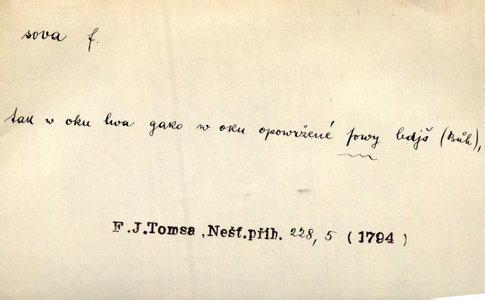 sova f.
tak w oku lwa gako w oku opowržené sowy bdjš (Bůh),
F.J.Tomsa ,Nešť.příh. 228, 5 (1794)